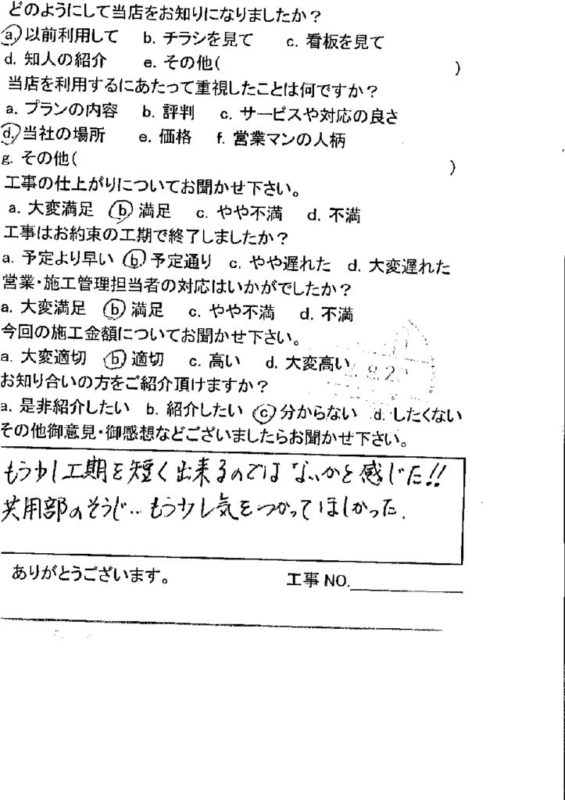 どのようにして当店をお知りになりましたか？
a. 以前利用して b. チラシを見て c. 看板を見て
d. 知人の紹介 e. その他( )
当店を利用するにあたって重視したことは何ですか？
a. プランの内容 b. 評判 c. サービスや対応の良さ
d. 当社の場所 e. 価格 f. 営業マンの人柄
g. その他( )
工事の仕上がりについてお聞かせ下さい。
a. 大変満足 b 満足 c. やや不満 d. 不満
工事はお約束の工期で終了しましたか？
a. 予定より早い b. 予定通り c. やや遅れた d. 大変遅れた
営業・施工管理担当者の対応はいかがでしたか？
a. 大変満足 b 満足 c. やや不満 d. 不満
今回の施工金額についてお聞かせ下さい。
a. 大変適切 b 適切 c. 高い d. 大変高い
お知り合いの方をご紹介頂けますか？
a. 是非紹介したい b. 紹介したい c 分からない d. したくない
その他御意見・御感想などございましたらお聞かせ下さい。
もう少し工期を短く出来るのではないかと感じた!!
共用部のそうじ‥もう少し気をつかってほしかった.
ありがとうございます。 工事NO.